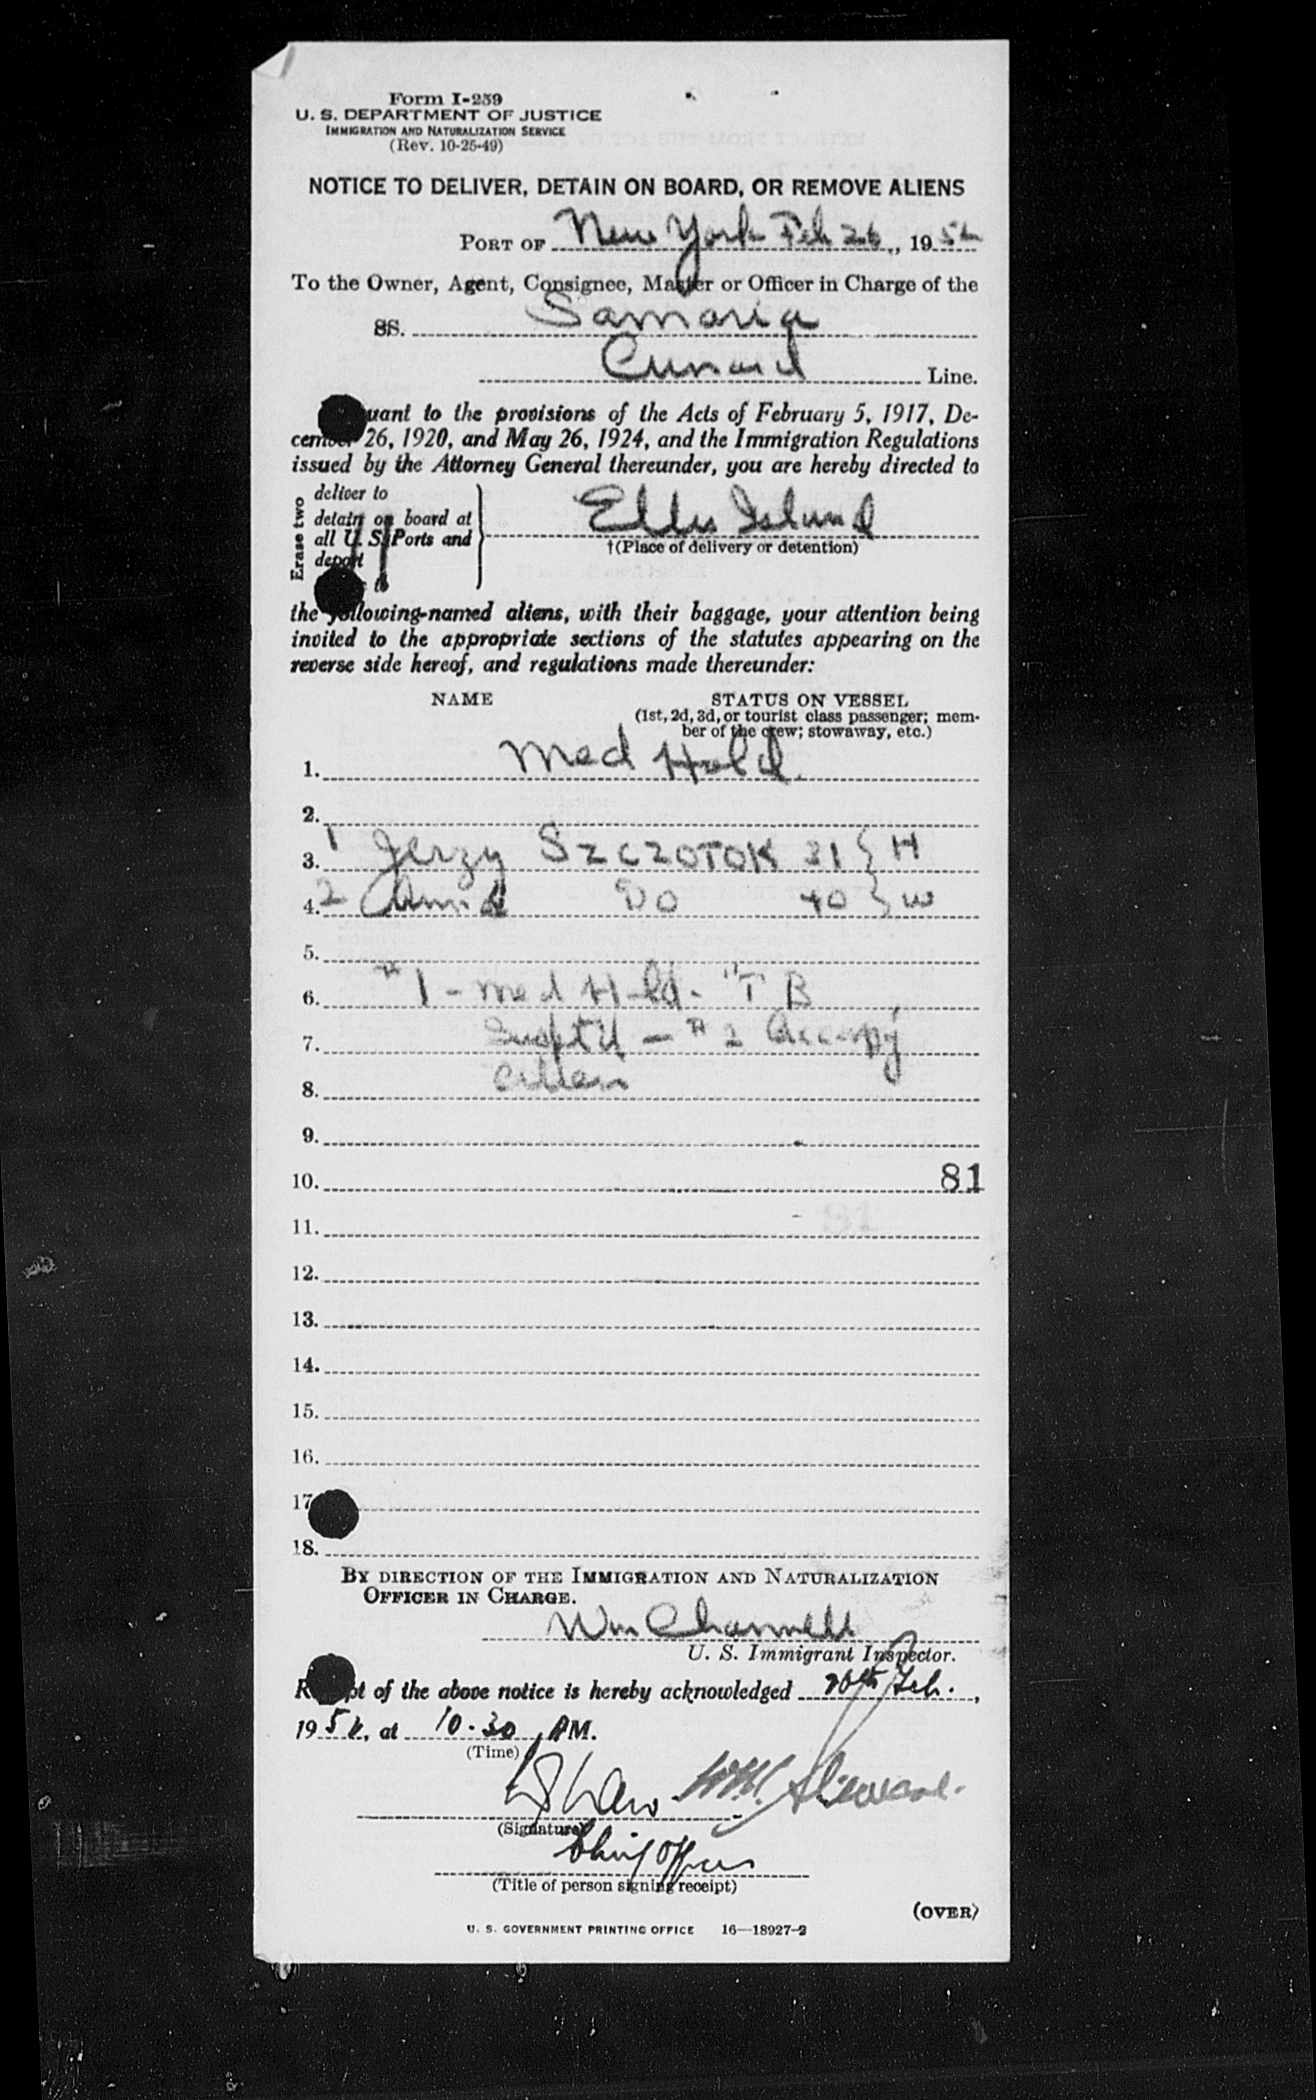 Form I-259
U. S. DEPARTMENT OF JUSTICE
IMMIGRATION AND NATURALIZATION SERVICE
(Rev. 10-25-49)
NOTICE TO DELIVER, DETAIN ON BOARD, OR REMOVE ALIENS
PORT OF New York Feb 26, 1952
To the Owner, Agent, Consignee, Master or Officer in Charge of the
SS. Samaria
Cunard Line.
uant to the provisions of the Acts of February 5, 1917, De-
cember 26, 1920, and May 26, 1924, and the Immigration Regulations
issued by the Attorney General thereunder, you are hereby directed to
Erase two
deliver to
detain on board at
all U. S. Ports and
deport
to
Ellis Island
†(Place of delivery or detention)
the following-named aliens, with their baggage, your attention being
invited to the appropriate sections of the statutes appearing on the
reverse side hereof, and regulations made thereunder:
NAME STATUS ON VESSEL
(1st, 2d, 3d, or tourist class passenger; mem-
ber of the crew; stowaway, etc.)
1. Med Held
2.
3. 1 Jerzy SZCZOTOK 31 } H
4. 2 Anna Do 40 } W
5.
6. #1 - Med Held - "TB
7. - #2 Accompy
8. alien
9.
10. 81
11.
12.
13.
14.
15.
16.
17
18.
BY DIRECTION OF THE IMMIGRATION AND NATURALIZATION
OFFICER IN CHARGE.
Wm Channell
U. S. Immigrant Inspector.
R pt of the above notice is hereby acknowledged 26th Feb.,
1952, at 10.30 PM.
(Time)
Law
(Signature)
Chief Officer
(Title of person signing receipt)
(OVER)
U. S. GOVERNMENT PRINTING OFFICE 16—18927-2